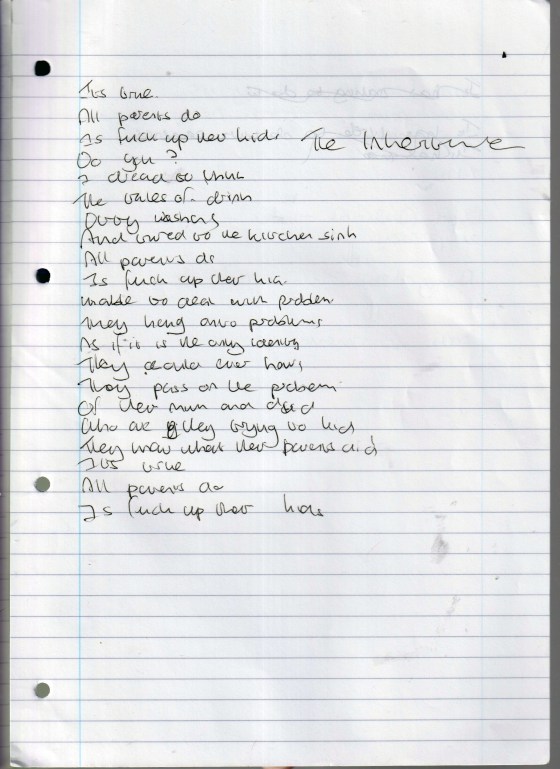 Its true.
All parents do
Is fuck up their kids The Inheritance
Do you?
I dread to think
The of drink
washing
And to the kitchen sink
All parents do
Is fuck up their kids
unable to deal with problem
They hang onto problems
As if it is the only identity
They over hours
They pass on the problem
Of their mum and dad
Who are they trying to kid
They know what their parents did
Its true
All parents do
Is fuck up their kids